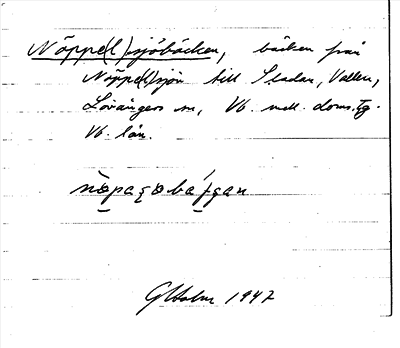 Nöppe(l)sjöbäcken, bäcken från
Nöppe(l)sjön till Sladan, Vallen,
Lövångers sn, Vb. mell. doms. tg.
Vb. län.
GHolm 1947